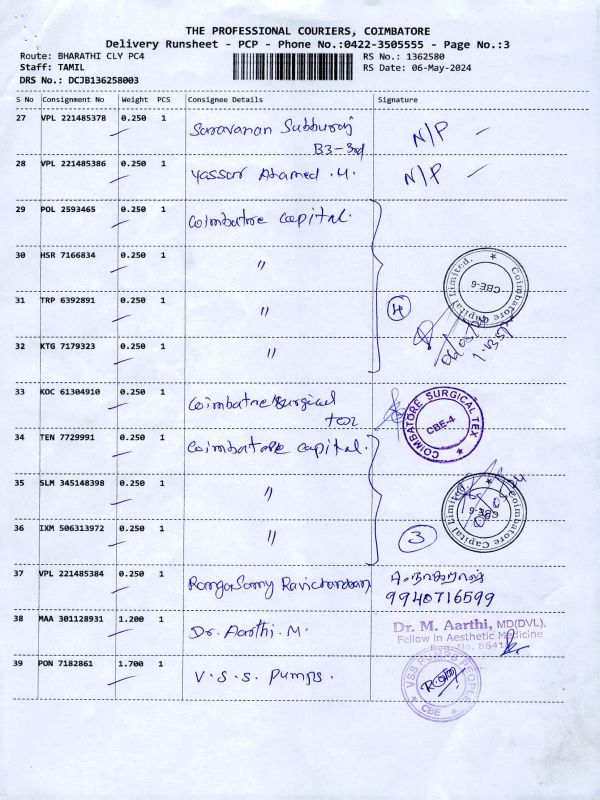 THE PROFESSIONAL COURIERS, COIMBATORE
Delivery Runsheet - PCP - Phone No.:0422-3505555 - Page No.:3
Route: BHARATHI CLY PC4
RS No.: 1362580
Staff: TAMIL
RS Date: 06-May-2024
DRS No.: DCJB136258003
S No Consignment No Weight PCS Consignee Details Signature
27 VPL 221485378 0.250 1 Saravanan Subburaj N/P
B3-3rd
28 VPL 221485386 0.250 1 Yassar Ahamed .M. N/P
29 POL 2593465 0.250 1 Coimbatore capital.
30 HSR 7166834 0.250 1 "
Coimbatore Capital Limited. CBE-6
31 TRP 6392891 0.250 1 " 4
32 KTG 7179323 0.250 1 "
33 KOC 61304910 0.250 1 Coimbatore surgical
tex
COIMBATORE SURGICAL TEX CBE-4
34 TEN 7729991 0.250 1 Coimbatore capital.
35 SLM 345148398 0.250 1 "
Coimbatore Capital Limited. CBE-6
36 IXM 506313972 0.250 1 " 3
37 VPL 221485384 0.250 1 RangaSamy Ravichandran
9940716599
38 MAA 301128931 1.200 1 Dr. Aarthi. M.
Dr. M. Aarthi, MD(DVL).
Fellow in Aesthetic Medicine
Reg. No. 8641
39 PON 7182861 1.700 1 V.S.S. Pumps.
VSS PEOPLE CBE